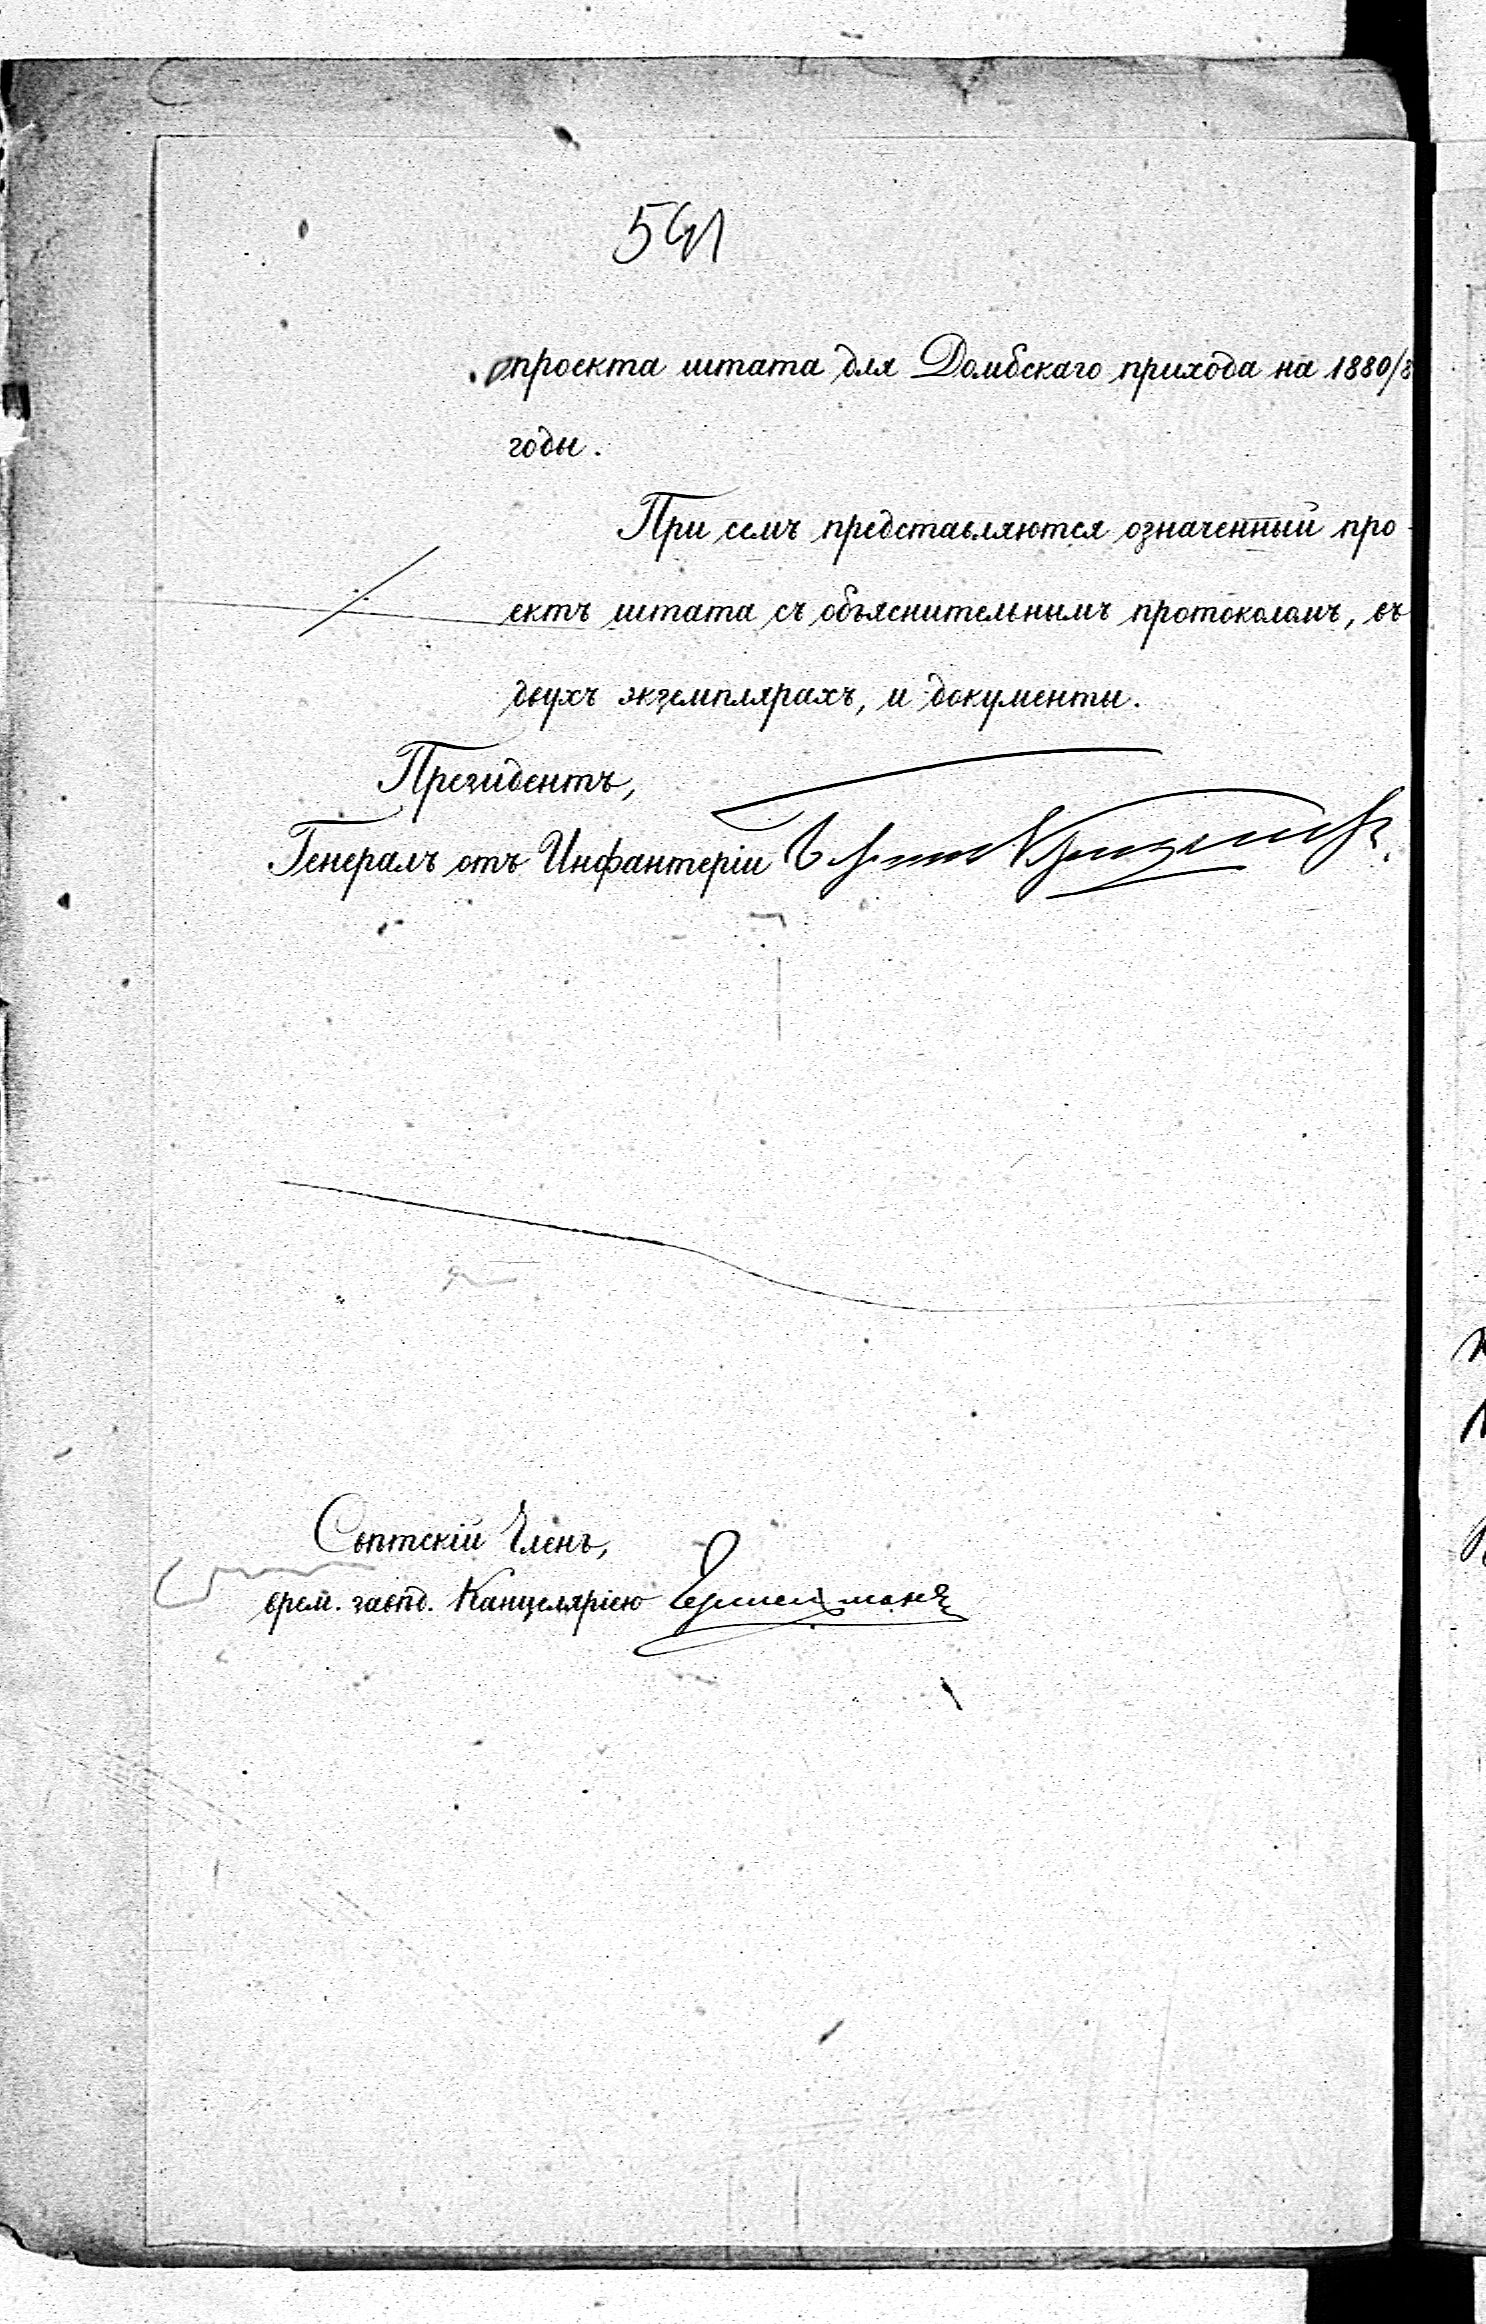 541
проекта штата для Домбскаго прихода на 1880/8
годы.
При семъ представляются означенный про-
ектъ штата съ объяснительнымъ протоколомъ, въ
двухъ экземплярахъ, и документы.
Президентъ,
Генералъ отъ Инфантеріи
Свѣтскій Членъ,
врем. завѣд. Канцеляріею